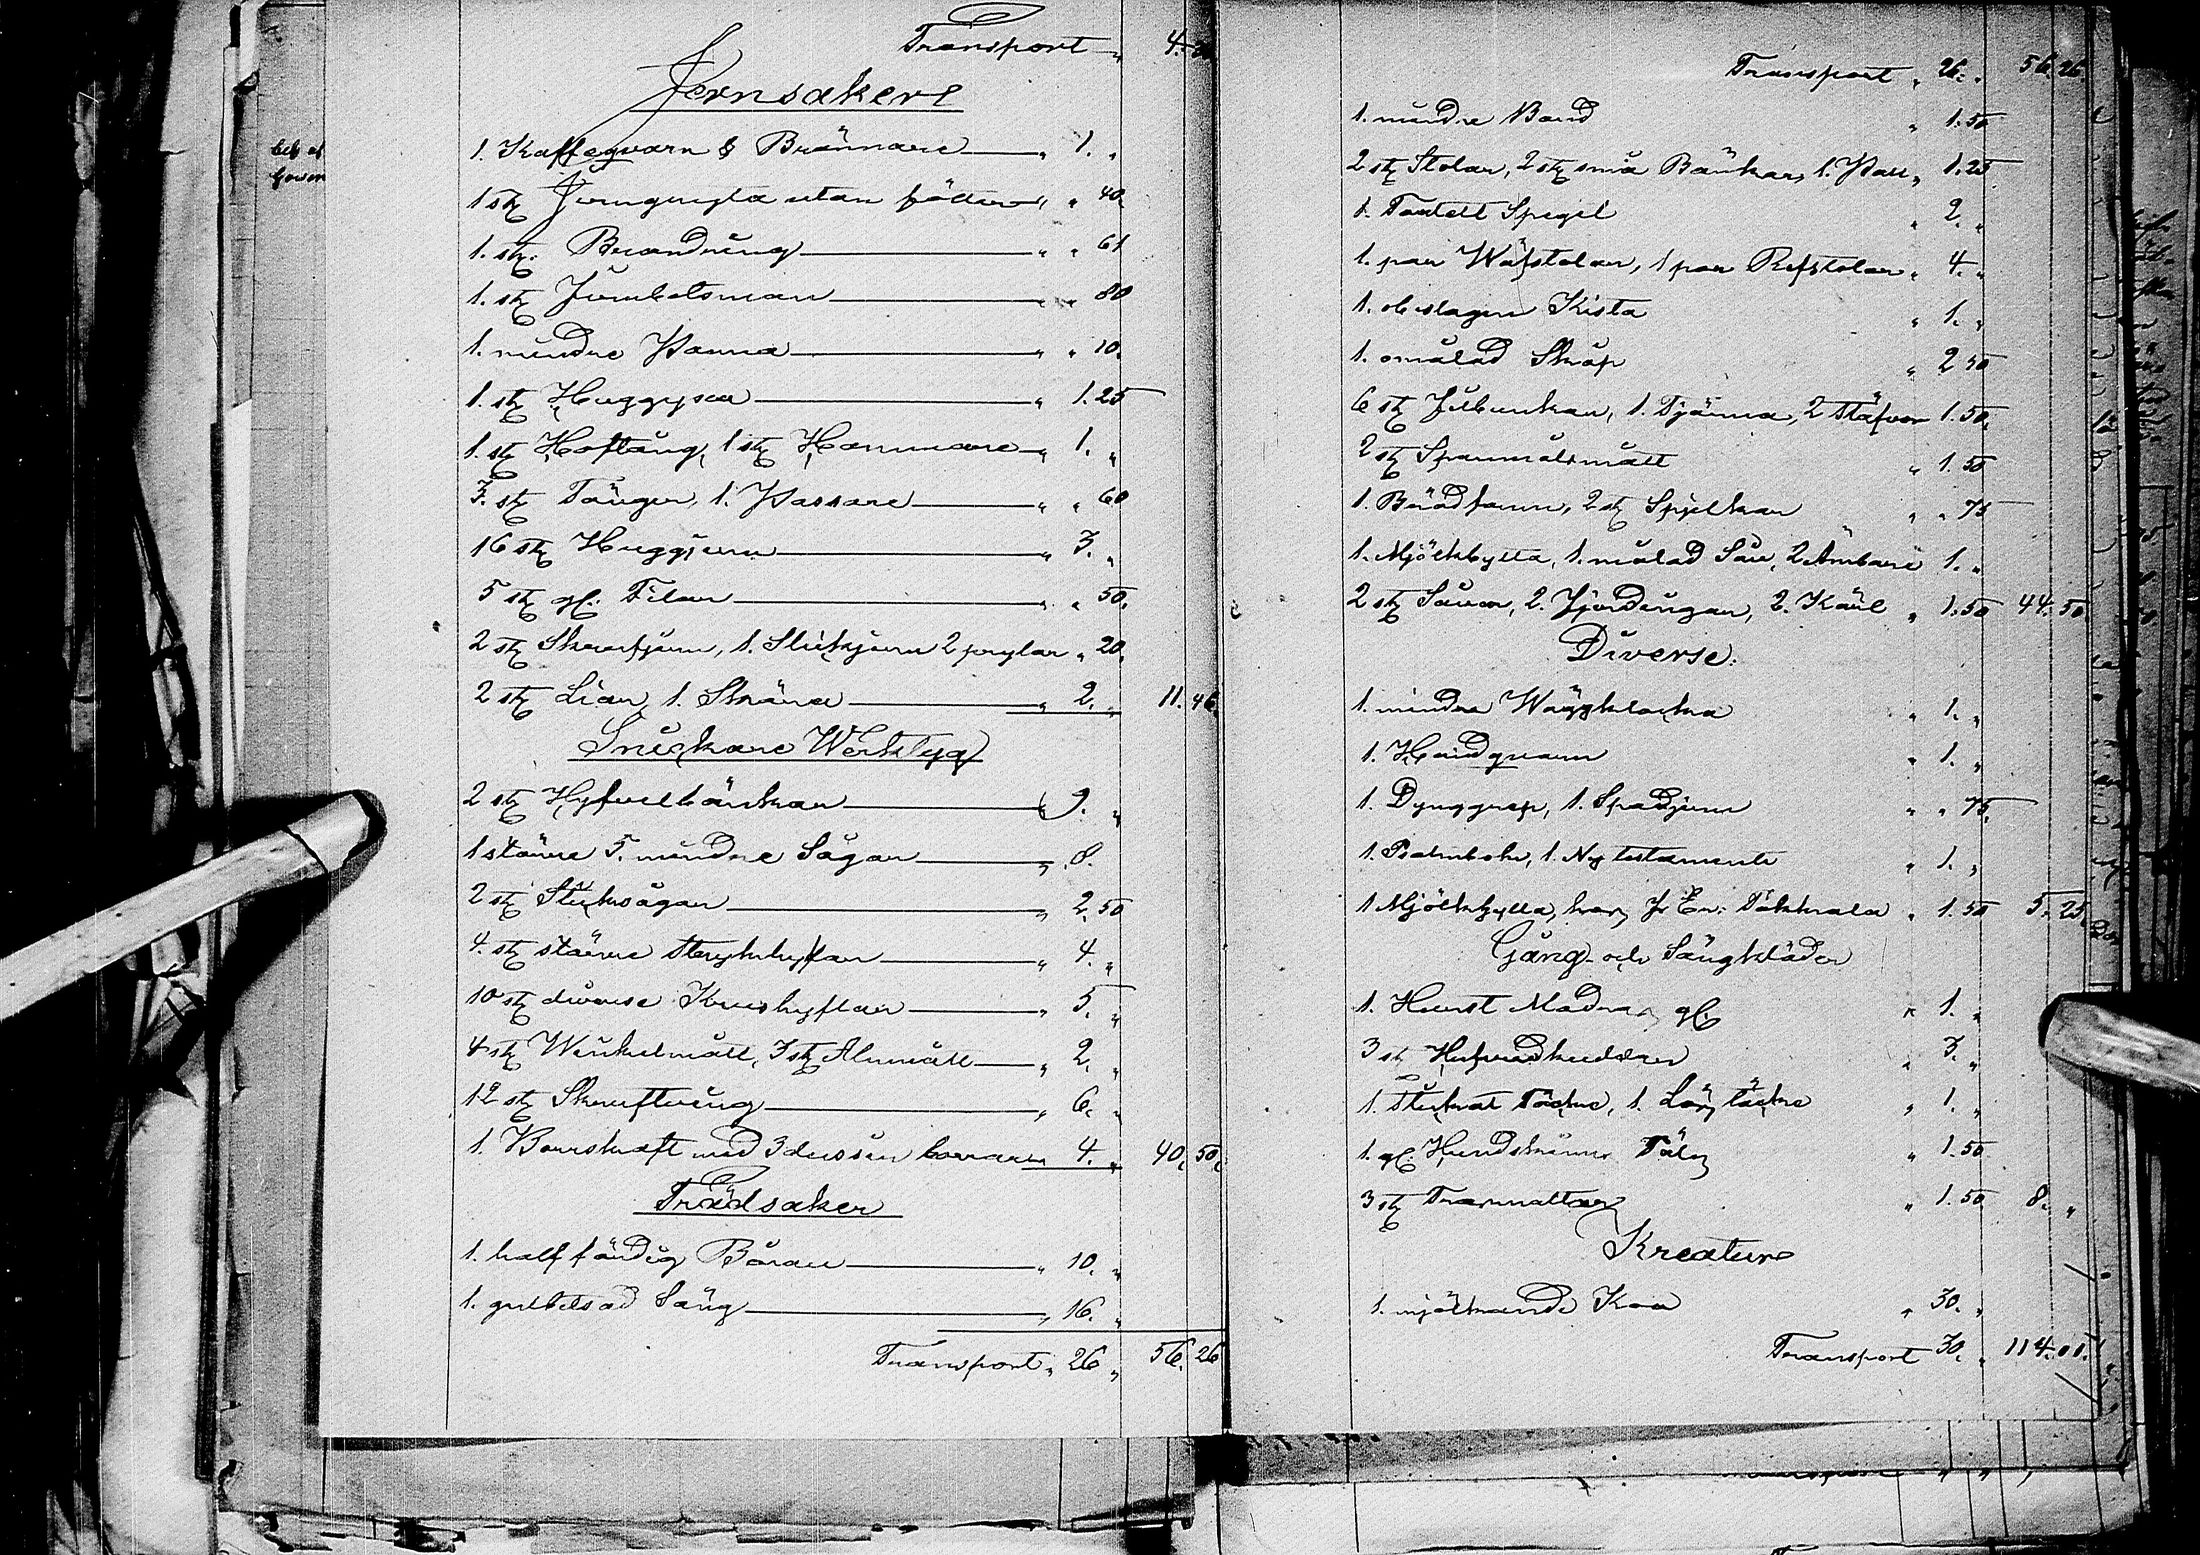 Transport „ 4.
Jernsakerl
1. Kaffeqvarn & Brännare „ 1. „
1 st Jerngryta utan fötter „ „ 40.
1. st. Brandring „ „ 61
1. st „ „ 80
1. mindre Panna „ „ 10.
1. st Huggyxa „ 1.25
1. st Hoftång, 1 st Hammare „ 1. „
3. st Tänger, 1. Passare „ „ 60
16 st Huggjern „ 3. „
5 st gl. Filar „ „ 50.
2 st Skrufjern, 1. Slickjern 2 prylar „ 20.
2 st Liar, 1. Skära „ 2. „ 11. 46.
Snickare Werktyg
2 st Hyfvelbänkar „ 9. „
1 större 5. mindre Sågar „ 8.
2 st Sticksågar „ 2.50
4. st större Strykhyflar „ 4. „
10 st diverse Krushyflar „ 5. „
4 st Winkelmått, 3 st Alnmått „ 2. „
12 st Skruftving „ 6. „
1. Borrskaft med 3 dussin borrar „ 4. „ 40. 50.
Trädsaker
1. halffärdig Båran „ 10. „
1. gulbetsad Säng „ 16. „
Transport „ 26 „ 56. 26
Transport „ 26. „ 56. 26
1. mindre Bord „ 1.50
2 st Stolar, 2 st små Bänkar, 1. Pall „ 1.25
1. Spegel „ 2. „
1. par Wäfstolar, 1 par Refstolar „ 4. „
1. obeslagen Kista „ 1. „
1. omålad Skåp „ 2 50
6 st Filbunkar, 1. Tjärna, 2 Stäfvor 1.50.
2 st Spanmålsmått „ 1.50
1. Brödkorn, 2 st Spjelkar „ „ 75
1. Mjölkbytta, 1. målad Så, 2 Ämbare 1. „
2 st Såar, 2. Fjerdingar, 2. Käril „ 1.50 44. 50.
Diverse.
1. mindre Wäggklocka „ 1. „
1. Handqvarn „ 1. „
1. Dynggrep, 1. Spadjern „ „ 75.
1. Psalmbok, 1. Ny testamente „ 1. „
1 Mjölkbytta, hos Er: „ 1.50 5. 25
Gång- och Sängkläder
1. Madrass gl. „ 1. „
3 st Hufvudkuddar „ 3. „
1. Stickat Täcke, 1. täcke „ 1. „
1. gl. Hundskinns Fäll „ 1.50
3 st Trasmattor „ 1.50 8. „
Kreatur
1. mjölkande Koa „ 30. „
Transport 30. „ 114. 01.